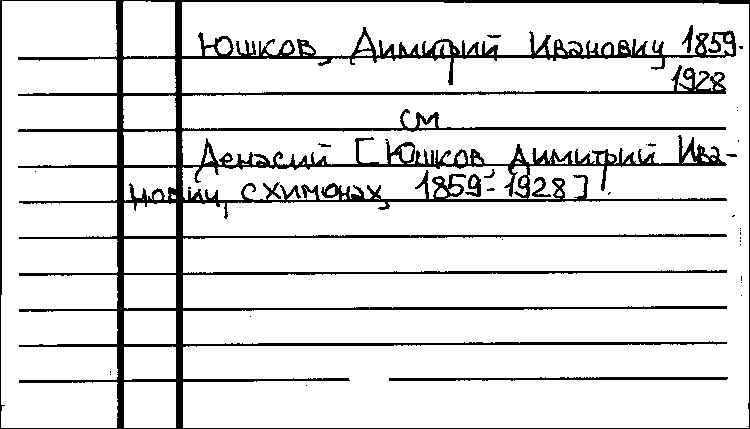 Юшков, Димитрий Иванович 1859-
1928
см
Денасий [Юшков, Димитрий Ива-
нович, схимонах, 1859-1928]